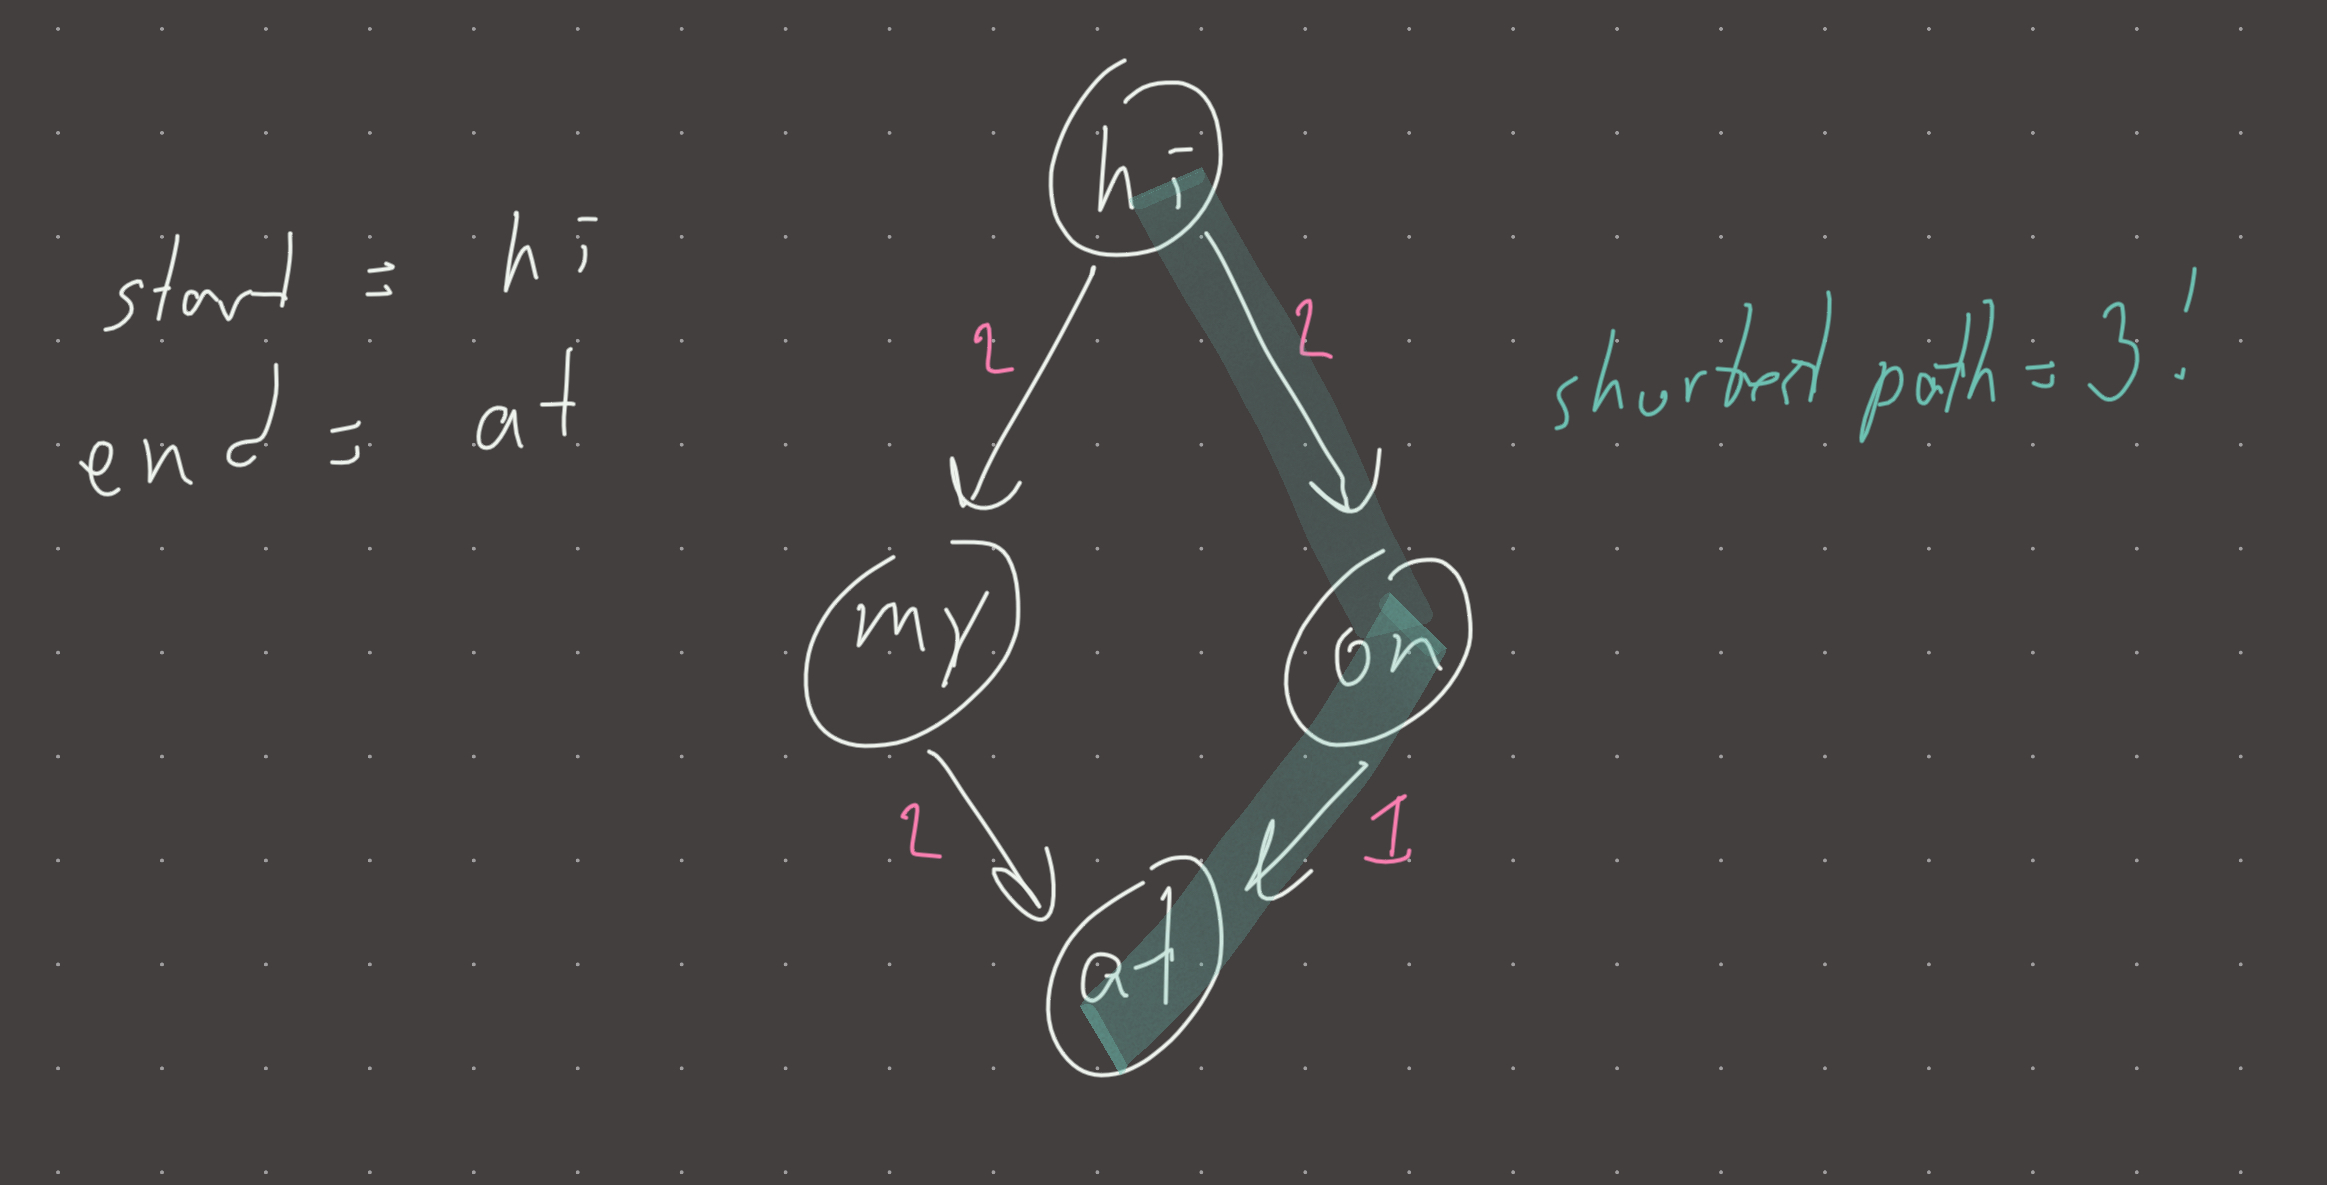 start = hi
end = at
hi
2
2
my
on
2
1
at
shortest path = 3!